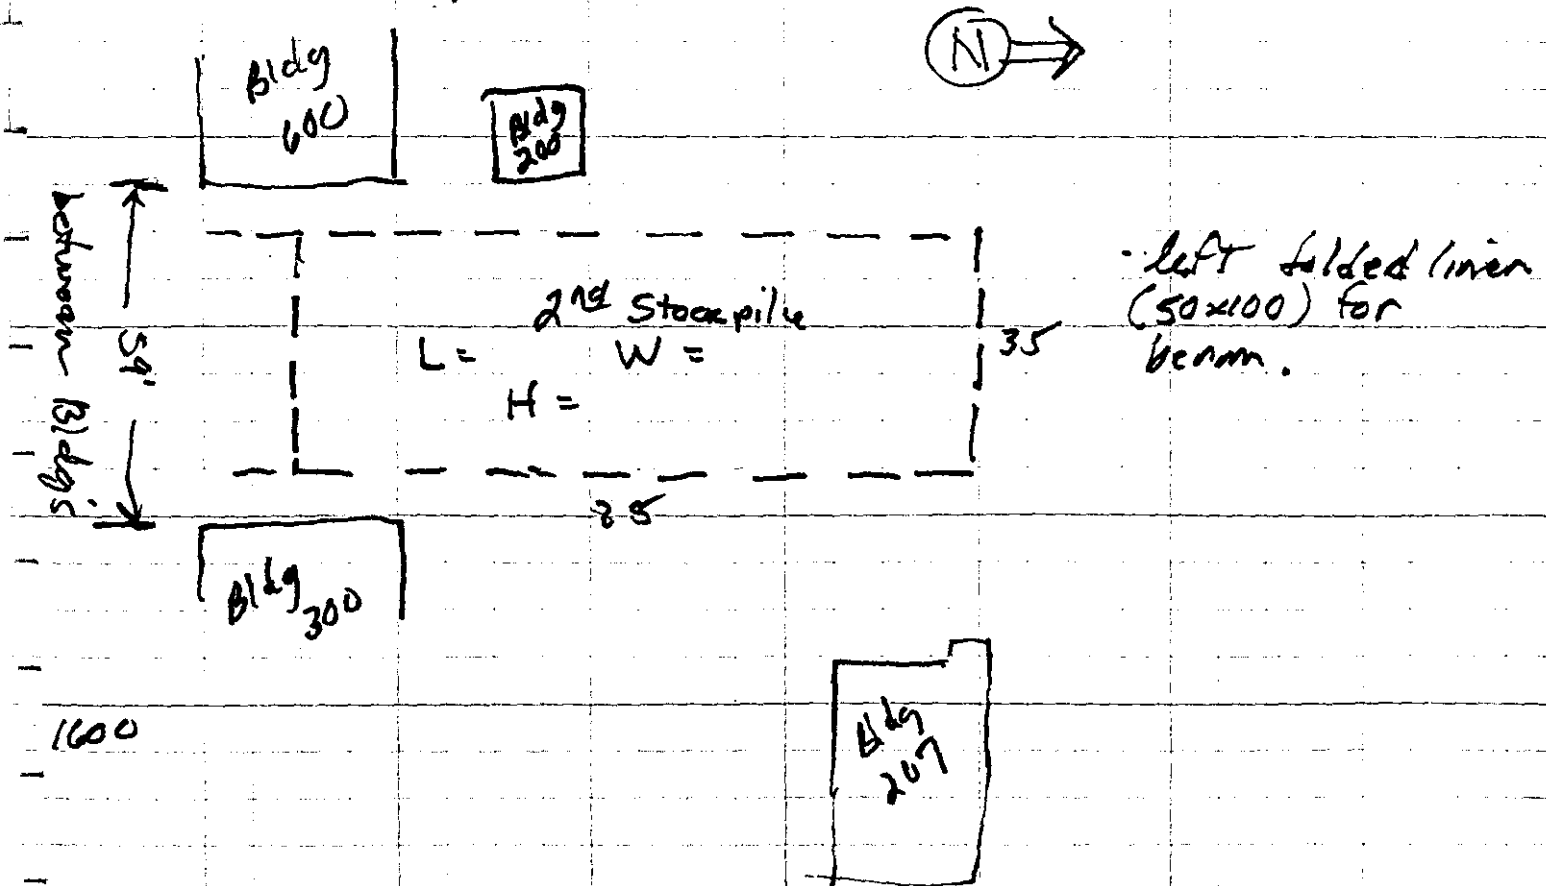 N
Bldg
600
Bldg
200
between Bldg's
59'
2nd Stockpile
L = W =
H =
35
85
- left folded liner
(50x100) for
berm.
Bldg
300
1600
Bldg
207